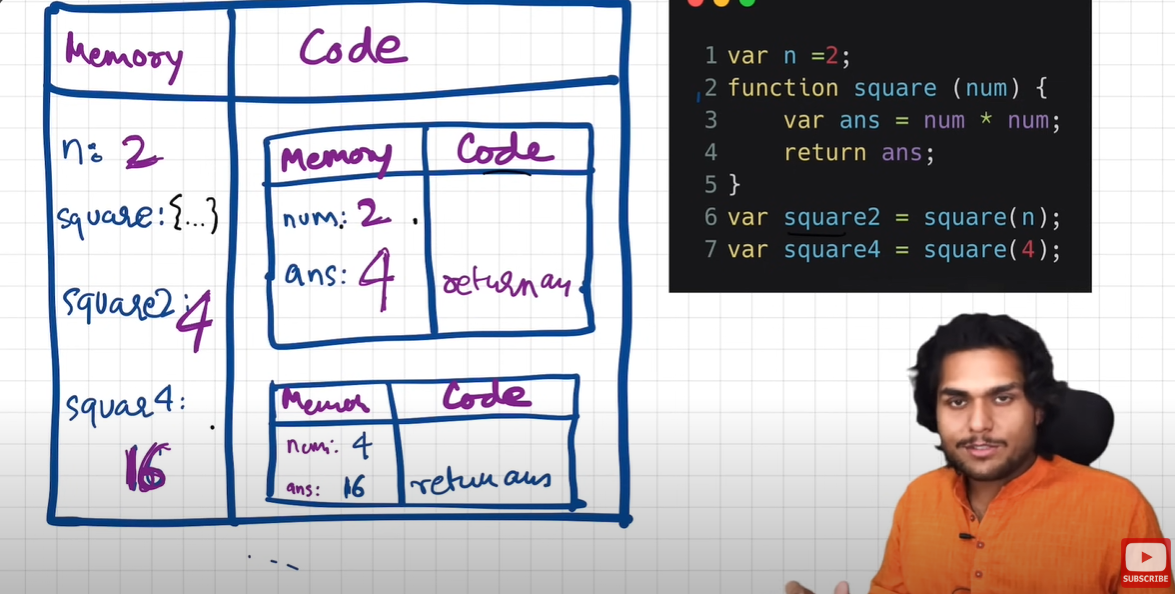 Memory Code
n: 2
square: {...}
square2: 4
squar4:
16
Memory Code
num: 2
ans: 4
return an
Memor Code
num: 4
ans: 16
return ans
1 var n =2;
2 function square (num) {
3 var ans = num * num;
4 return ans;
5 }
6 var square2 = square(n);
7 var square4 = square(4);
SUBSCRIBE